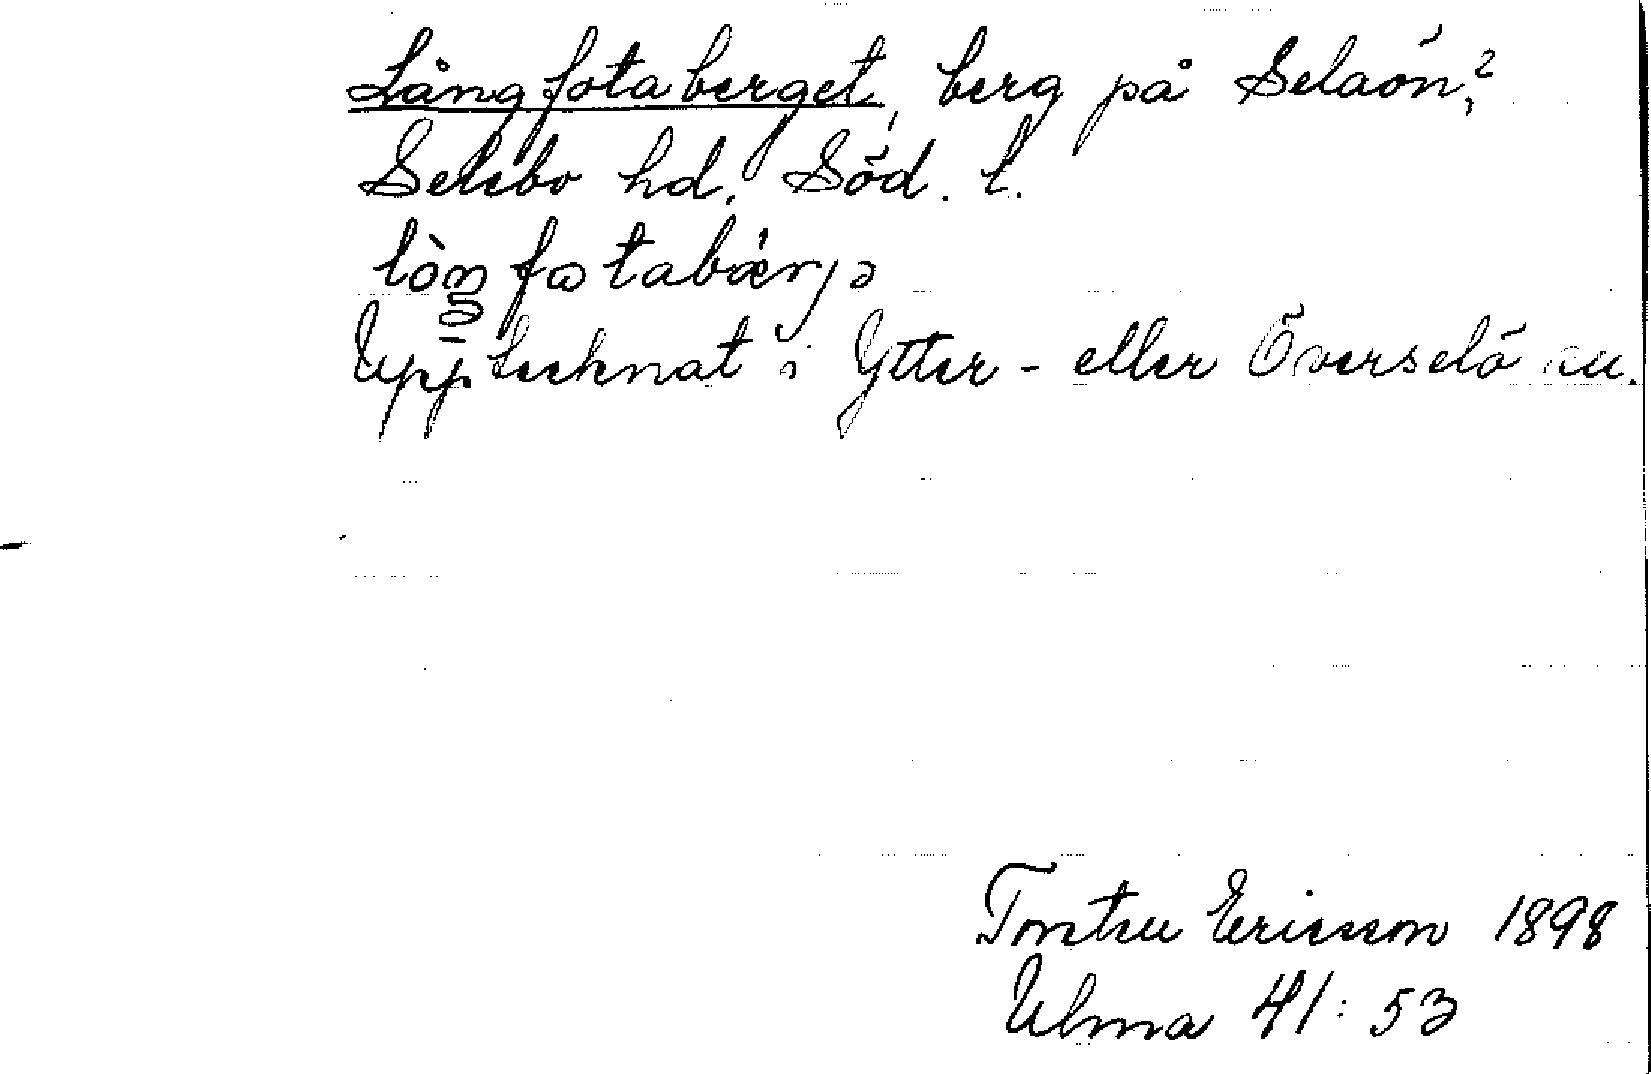 Långfotaberget, berg på Selaön?,
Selebo hd, Söd. l.
lòŋfωtabærjə
Upptecknat i Ytter- eller Överselö su.
Torsten Ericsson 1898
Ulma 41:53